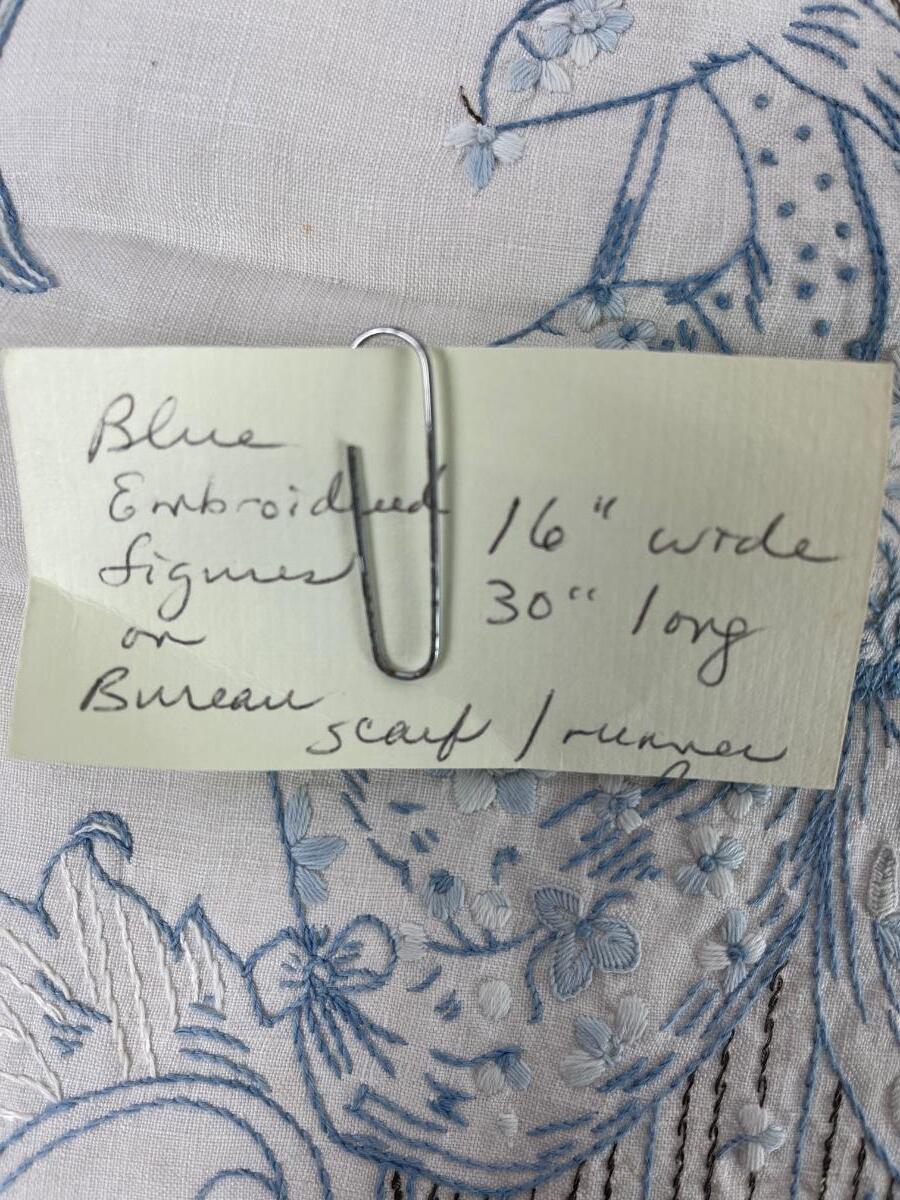 Blue
Embroidered
figures
on
Bureau
scarf / runner
16" wide
30" long